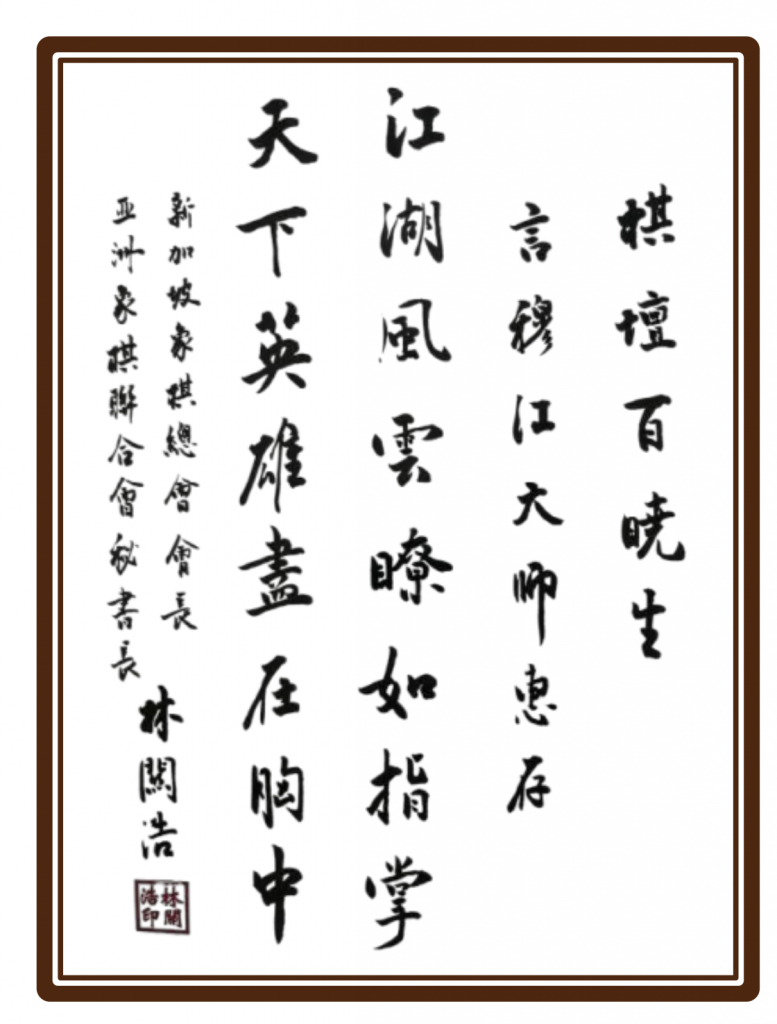 棋壇百曉生
言穆江大师惠存
江湖風雲瞭如指掌
天下英雄盡在胸中
新加坡象棋總會會長
亚洲象棋聯合會秘書長
林關浩
林關浩印